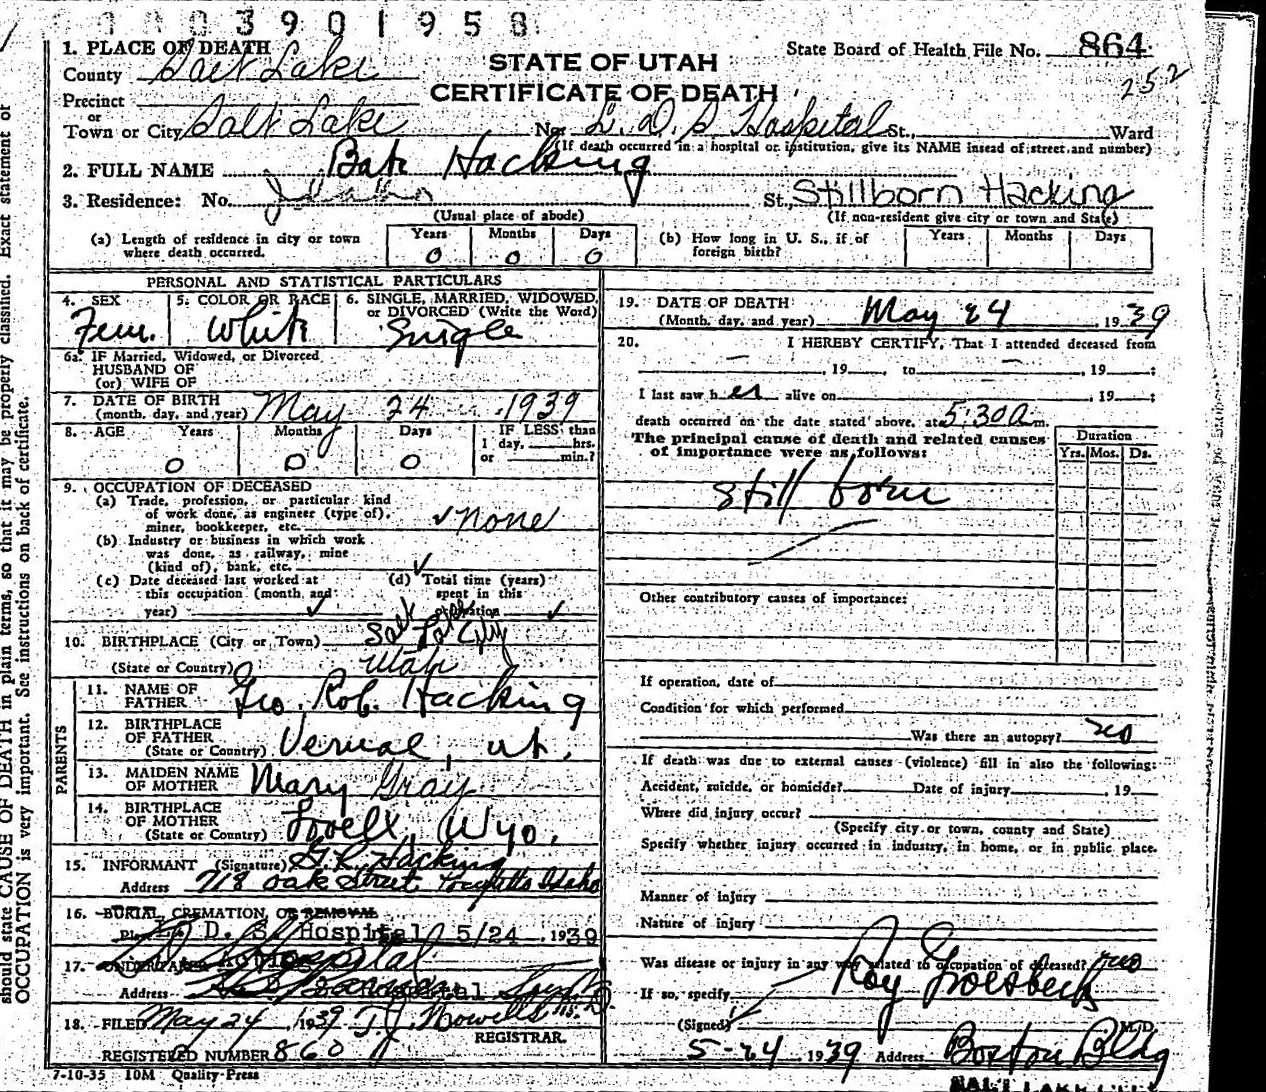 0003901958
1. PLACE OF DEATH
County Salt Lake
STATE OF UTAH
CERTIFICATE OF DEATH
State Board of Health File No. 864
252
Precinct
or
Town or City Salt Lake No. L. D. S Hospital St., Ward
(If death occurred in a hospital or institution, give its NAME instead of street and number)
2. FULL NAME Hacking
3. Residence: No. Idaho St. Stillborn Hacking
(Usual place of abode) (If non-resident give city or town and State)
(a) Length of residence in city or town where death occurred. Years 0 Months 0 Days 0
(b) How long in U. S., if of foreign birth? Years Months Days
PERSONAL AND STATISTICAL PARTICULARS
4. SEX 5. COLOR OR RACE 6. SINGLE, MARRIED, WIDOWED, or DIVORCED (Write the Word)
Fem. White Single
6a. IF Married, Widowed, or Divorced
HUSBAND OF
(or) WIFE OF
7. DATE OF BIRTH
(month, day, and year) May 24 1939
8. AGE Years Months Days IF LESS than
1 day, hrs.
or min.?
0 0 0
9. OCCUPATION OF DECEASED
(a) Trade, profession, or particular kind
of work done, as engineer (type of),
miner, bookkeeper, etc. ✓ none
(b) Industry or business in which work
was done, as railway, mine
(kind of), bank, etc. ✓
(c) Date deceased last worked at
this occupation (month and
year) ✓
(d) Total time (years)
spent in this
occupation ✓
10. BIRTHPLACE (City or Town) Salt Lake City
(State or Country) Utah
PARENTS
11. NAME OF
FATHER Geo. Rob. Hacking
12. BIRTHPLACE
OF FATHER
(State or Country) Vernal, ut.
13. MAIDEN NAME
OF MOTHER Mary Gray
14. BIRTHPLACE
OF MOTHER
(State or Country) Lovell, Wyo.
15. INFORMANT (Signature) G. R. Hacking
Address 718 Oak Street Pocatello Idaho
16. BURIAL, CREMATION, OR REMOVAL
D. S. Hospital 5/24 1939
17. UNDERTAKER
Address Hospital
18. FILED May 24 1939 T. J. Howells
REGISTRAR.
REGISTERED NUMBER 860
7-10-35 10M Quality Press
19. DATE OF DEATH
(Month, day, and year) May 24 1939
20. I HEREBY CERTIFY, That I attended deceased from
, 19 , to , 19 ;
I last saw her alive on , 19 ;
death occurred on the date stated above, at 5:30 a m.
The principal cause of death and related causes
of importance were as follows:
Duration
Yrs. Mos. Ds.
Still born
Other contributory causes of importance:
If operation, date of
Condition for which performed
Was there an autopsy? no
If death was due to external causes (violence) fill in also the following:
Accident, suicide, or homicide? Date of injury , 19
Where did injury occur?
(Specify city or town, county and State)
Specify whether injury occurred in industry, in home, or in public place.
Manner of injury
Nature of injury
Was disease or injury in any way related to occupation of deceased? no
If so, specify
(Signed) Roy Groesbeck M.D.
5-24 1939 Address Boston Bldg
SALT LAKE CITY
should state CAUSE OF DEATH in plain terms, so that it may be properly classified. Exact statement of
OCCUPATION is very important. See instructions on back of certificate.